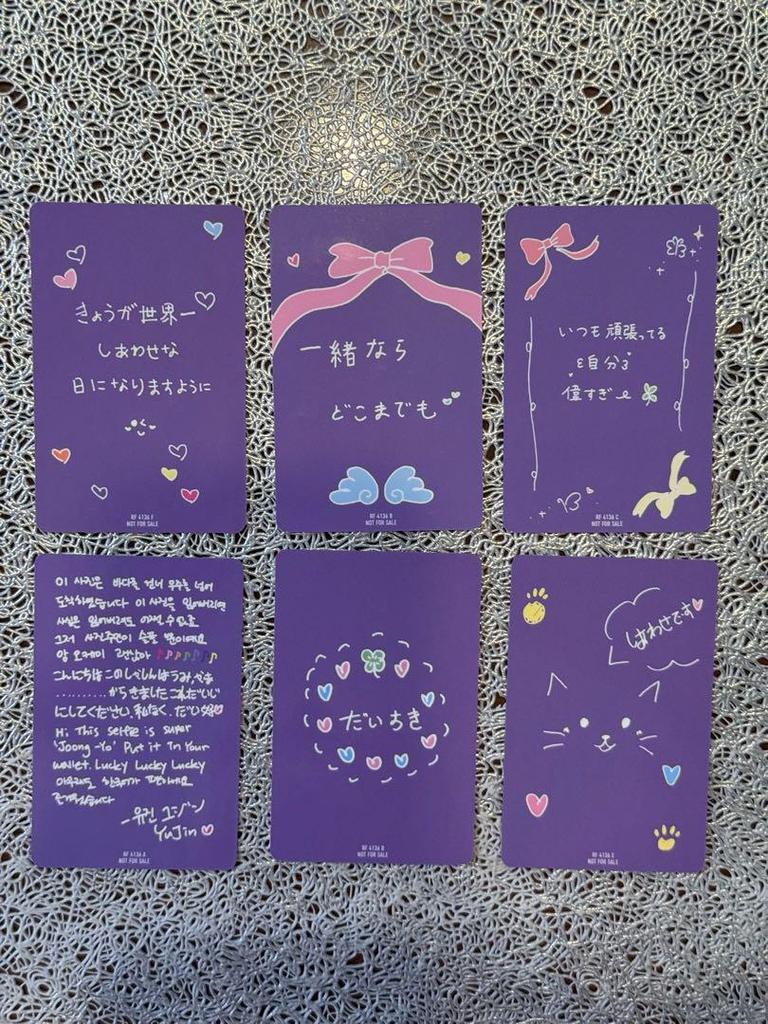 きょうが世界一
しあわせな
日になりますように
RF 4136 F
NOT FOR SALE
一緒なら
どこまでも
RF 4136 B
NOT FOR SALE
いつも頑張ってる
自分
偉すぎ
RF 4136 C
NOT FOR SALE
이 사진은 바다를 건너 우주를 넘어
도착하였습니다 이 사진을 잃어버리면
그저 사진주인이 슬플 뿐이에요
こんにちは このしゃしんはうみ、
.......... からきました これだいじ
にしてください。
Hi This selfie is super
'Joong-Yo' Put it In Your
wallet. Lucky Lucky Lucky
즐거웠습니다
-유진 ユジン
YuJin
RF 4136 A
NOT FOR SALE
だいちき
RF 4136 D
NOT FOR SALE
はわさです
RF 4136 E
NOT FOR SALE